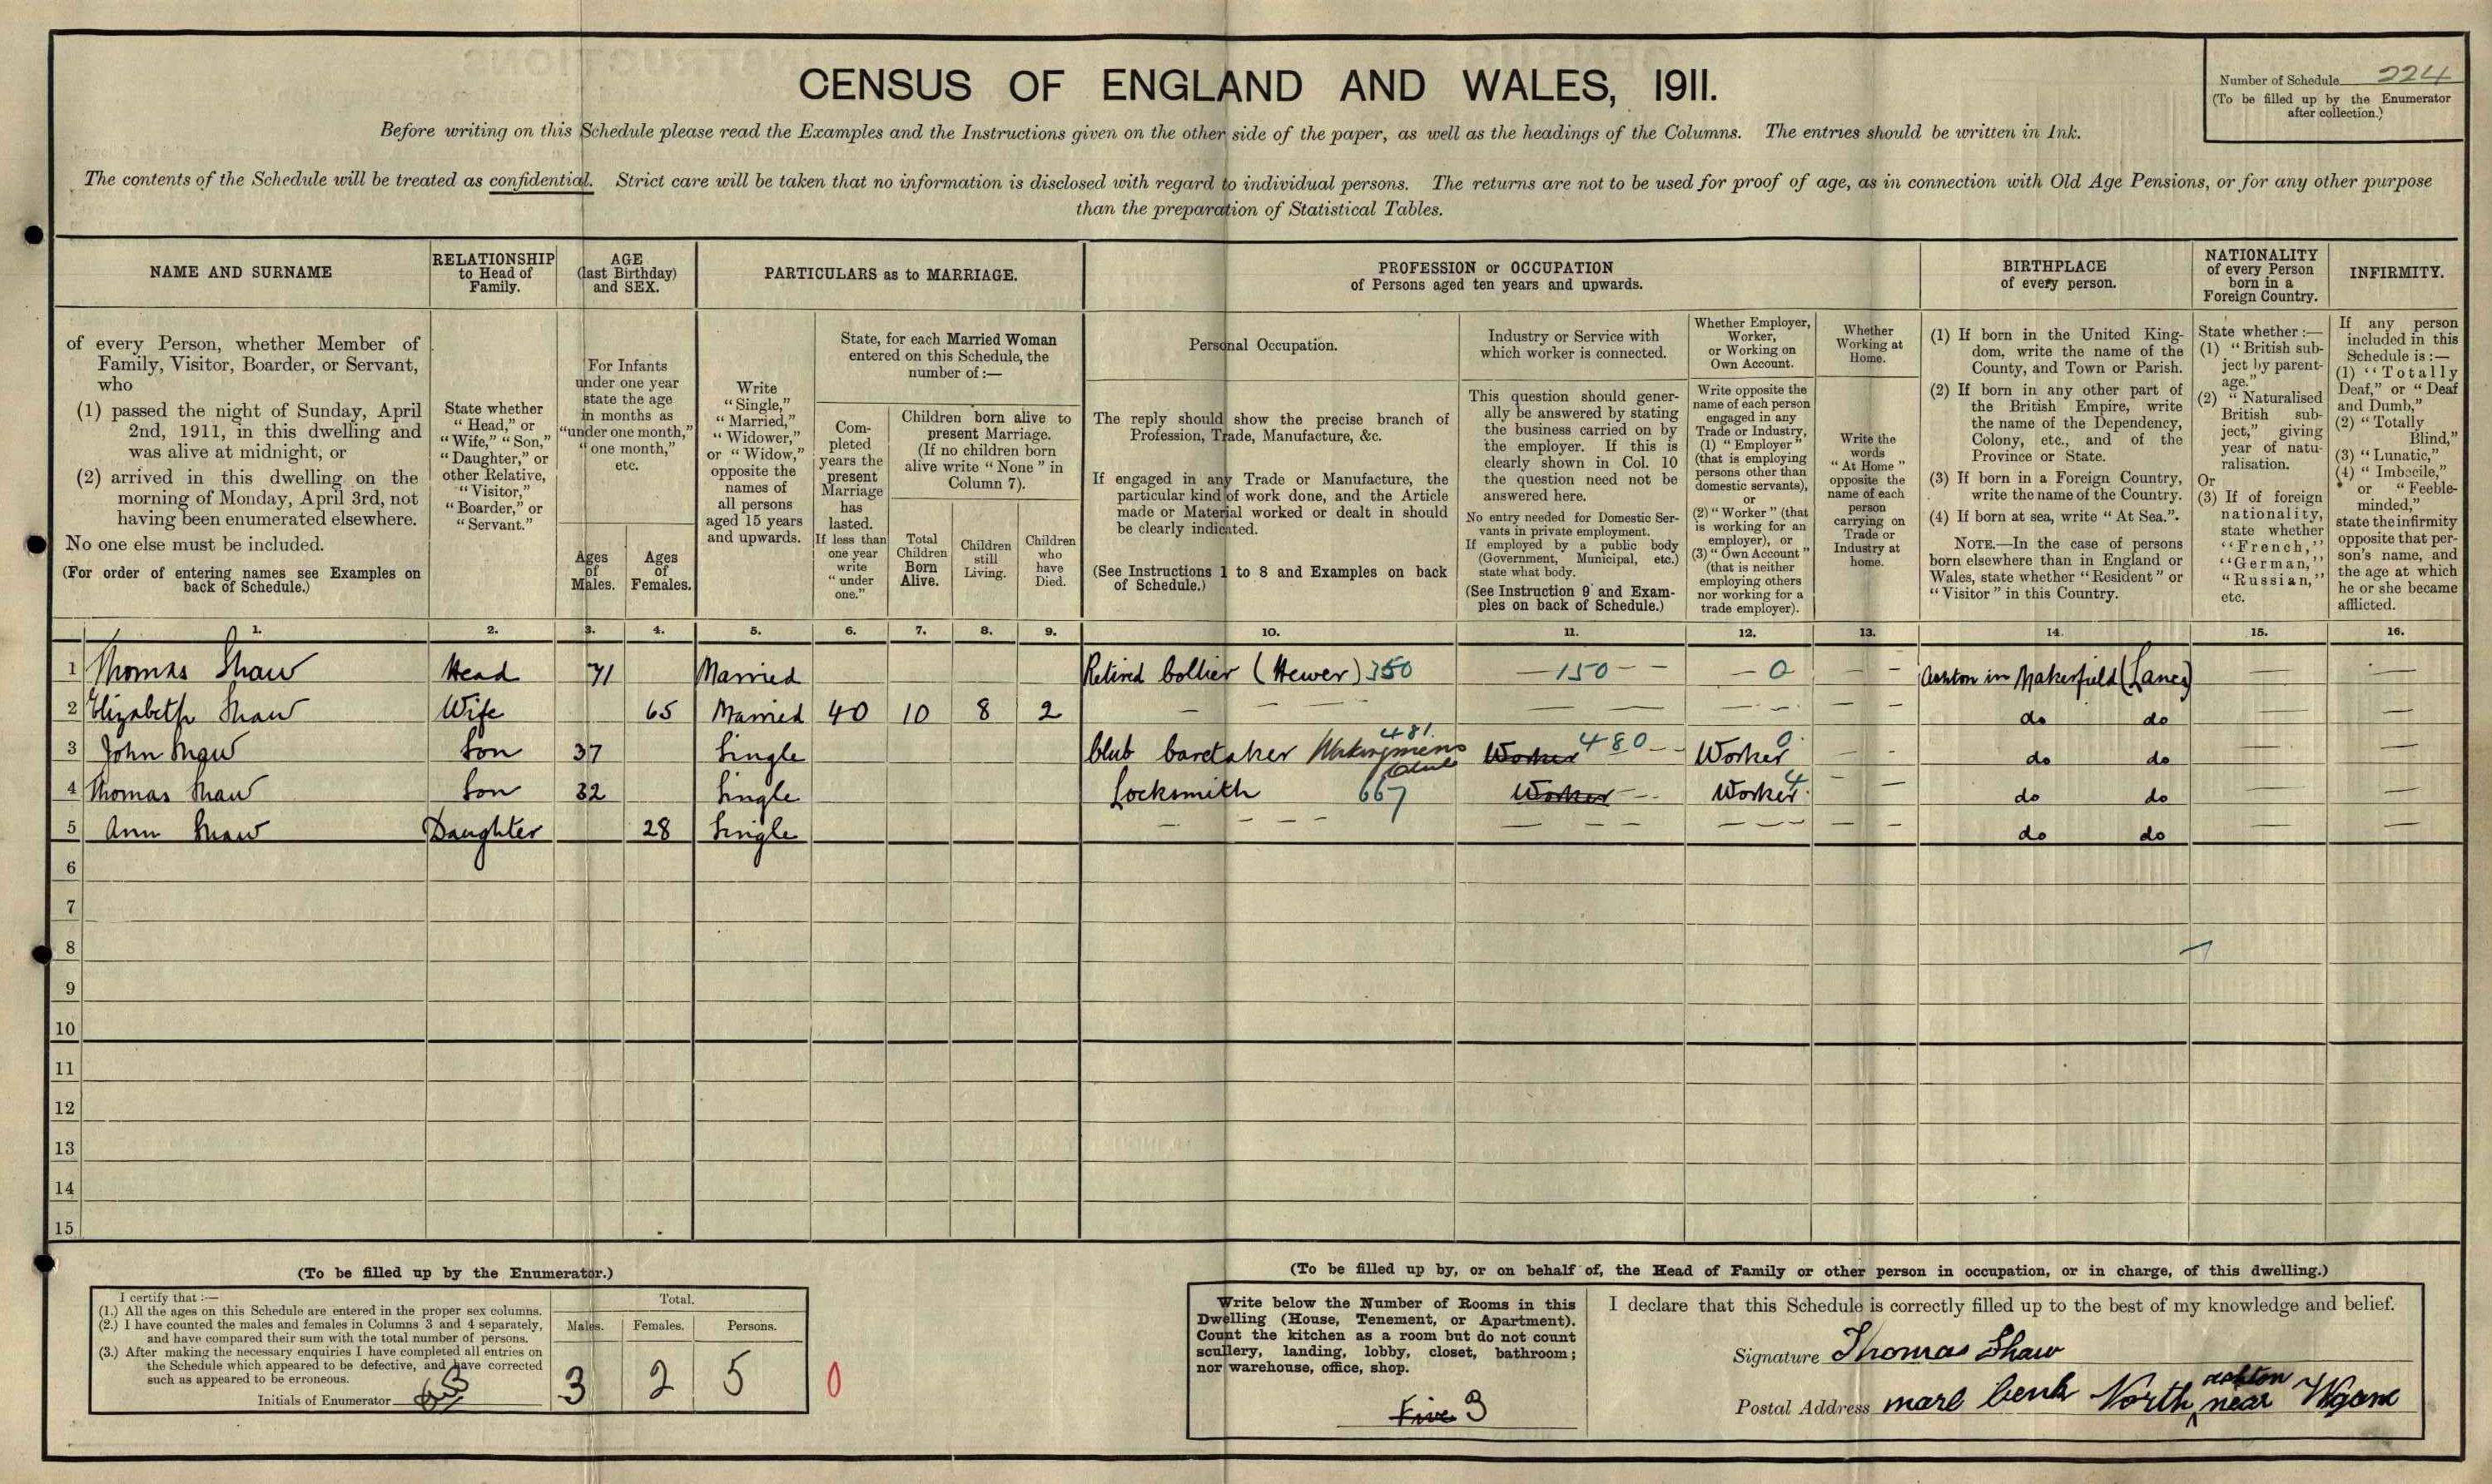 CENSUS OF ENGLAND AND WALES, 1911.
Number of Schedule 224
(To be filled up by the Enumerator
after collection.)
Before writing on this Schedule please read the Examples and the Instructions given on the other side of the paper, as well as the headings of the Columns. The entries should be written in Ink.
The contents of the Schedule will be treated as confidential. Strict care will be taken that no information is disclosed with regard to individual persons. The returns are not to be used for proof of age, as in connection with Old Age Pensions, or for any other purpose
than the preparation of Statistical Tables.
NAME AND SURNAME
of every Person, whether Member of
Family, Visitor, Boarder, or Servant,
who
(1) passed the night of Sunday, April
2nd, 1911, in this dwelling and
was alive at midnight, or
(2) arrived in this dwelling on the
morning of Monday, April 3rd, not
having been enumerated elsewhere.
No one else must be included.
(For order of entering names see Examples on
back of Schedule.)
RELATIONSHIP
to Head of
Family.
State whether
"Head," or
"Wife," "Son,"
"Daughter," or
other Relative,
"Visitor,"
"Boarder," or
"Servant."
AGE
(last Birthday)
and SEX.
For Infants
under one year
state the age
in months as
"under one month,"
"one month,"
etc.
Ages
of
Males.
Ages
of
Females.
PARTICULARS as to MARRIAGE.
Write
"Single,"
"Married,"
"Widower,"
or "Widow,"
opposite the
names of
all persons
aged 15 years
and upwards.
State, for each Married Woman
entered on this Schedule, the
number of :—
Com-
pleted
years the
present
Marriage
has
lasted.
If less than
one year
write
"under
one."
Children born alive to
present Marriage.
(If no children born
alive write "None" in
Column 7).
Total
Children
Born
Alive.
Children
still
Living.
Children
who
have
Died.
PROFESSION or OCCUPATION
of Persons aged ten years and upwards.
Personal Occupation.
The reply should show the precise branch of
Profession, Trade, Manufacture, &c.
If engaged in any Trade or Manufacture, the
particular kind of work done, and the Article
made or Material worked or dealt in should
be clearly indicated.
(See Instructions 1 to 8 and Examples on back
of Schedule.)
Industry or Service with
which worker is connected.
This question should gener-
ally be answered by stating
the business carried on by
the employer. If this is
clearly shown in Col. 10
the question need not be
answered here.
No entry needed for Domestic Ser-
vants in private employment.
If employed by a public body
(Government, Municipal, etc.)
state what body.
(See Instruction 9 and Exam-
ples on back of Schedule.)
Whether Employer,
Worker,
or Working on
Own Account.
Write opposite the
name of each person
engaged in any
Trade or Industry,
(1) "Employer"
(that is employing
persons other than
domestic servants),
or
(2) "Worker" (that
is working for an
employer), or
(3) "Own Account"
(that is neither
employing others
nor working for a
trade employer).
Whether
Working at
Home.
Write the
words
"At Home"
opposite the
name of each
person
carrying on
Trade or
Industry at
home.
BIRTHPLACE
of every person.
(1) If born in the United King-
dom, write the name of the
County, and Town or Parish.
(2) If born in any other part of
the British Empire, write
the name of the Dependency,
Colony, etc., and of the
Province or State.
(3) If born in a Foreign Country,
write the name of the Country.
(4) If born at sea, write "At Sea."
NOTE.—In the case of persons
born elsewhere than in England or
Wales, state whether "Resident" or
"Visitor" in this Country.
NATIONALITY
of every Person
born in a
Foreign Country.
State whether :—
(1) "British sub-
ject by parent-
age."
(2) "Naturalised
British sub-
ject," giving
year of natu-
ralisation.
Or
(3) If of foreign
nationality,
state whether
"French,"
"German,"
"Russian,"
etc.
INFIRMITY.
If any person
included in this
Schedule is :—
(1) "Totally
Deaf," or "Deaf
and Dumb,"
(2) "Totally
Blind,"
(3) "Lunatic,"
(4) "Imbecile,"
or "Feeble-
minded,"
state the infirmity
opposite that per-
son's name, and
the age at which
he or she became
afflicted.
1. 2. 3. 4. 5. 6. 7. 8. 9. 10. 11. 12. 13. 14. 15. 16.
1 Thomas Shaw Head 71 Married Retired Collier (Hewer) 350 — 150 — — — 0 — — Ashton in Makerfield (Lancs) — —
2 Elizabeth Shaw Wife 65 Married 40 10 8 2 — — — — — — — — do do — —
3 John Shaw Son 37 Single Club Caretaker Workingmens Club 481. Worker 480 — Worker 0 — — do do — —
4 Thomas Shaw Son 32 Single Locksmith 667 Worker — Worker 4 — — do do — —
5 Ann Shaw Daughter 28 Single — — — — — — — — do do — —
6
7
8
9
10
11
12
13
14
15
(To be filled up by the Enumerator.)
I certify that :—
(1.) All the ages on this Schedule are entered in the proper sex columns.
(2.) I have counted the males and females in Columns 3 and 4 separately,
and have compared their sum with the total number of persons.
(3.) After making the necessary enquiries I have completed all entries on
the Schedule which appeared to be defective, and have corrected
such as appeared to be erroneous.
Initials of Enumerator
Total.
Males. Females. Persons.
3 2 5 0
(To be filled up by, or on behalf of, the Head of Family or other person in occupation, or in charge, of this dwelling.)
Write below the Number of Rooms in this
Dwelling (House, Tenement, or Apartment).
Count the kitchen as a room but do not count
scullery, landing, lobby, closet, bathroom;
nor warehouse, office, shop.
Five 3
I declare that this Schedule is correctly filled up to the best of my knowledge and belief.
Signature Thomas Shaw
Postal Address North ashton near Wigan